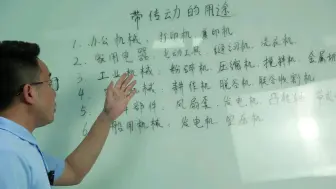 带传动的用途
1、办公机械、打印机 复印机
2、家用电器、电动工具 缝纫机 洗衣机
3、工业机械、粉碎机 压缩机、搅拌机、金属切
4、机械、耕作机 脱谷机 联合收割机
5、部件、风扇泵、发电机
6、船用机械、发电机 空压机